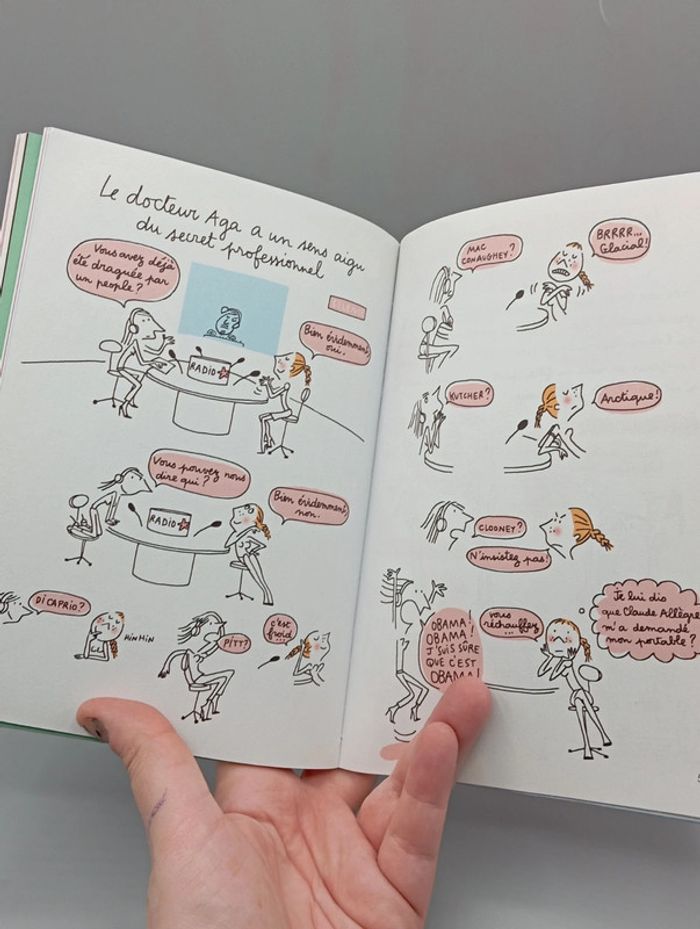 Le docteur Aga a un sens aigu
du secret professionnel
Vous avez déjà
été draguée par
un people?
SILENCE
Bien évidemment,
oui.
RADIO
Vous pouvez nous
dire qui?
Bien évidemment,
non.
RADIO
DI CAPRIO?
HIN HIN
PITT?
c'est
froid
MAC
CONAUGHEY?
BRRRR...
Glacial!
KUTCHER?
Arctique!
CLOONEY?
N'insistez pas!
OBAMA!
OBAMA!
J'SUIS SÛRE
QUE C'EST
OBAMA!
vous
réchauffez
...
Je lui dis
que Claude Allègre
m'a demandé
mon portable?